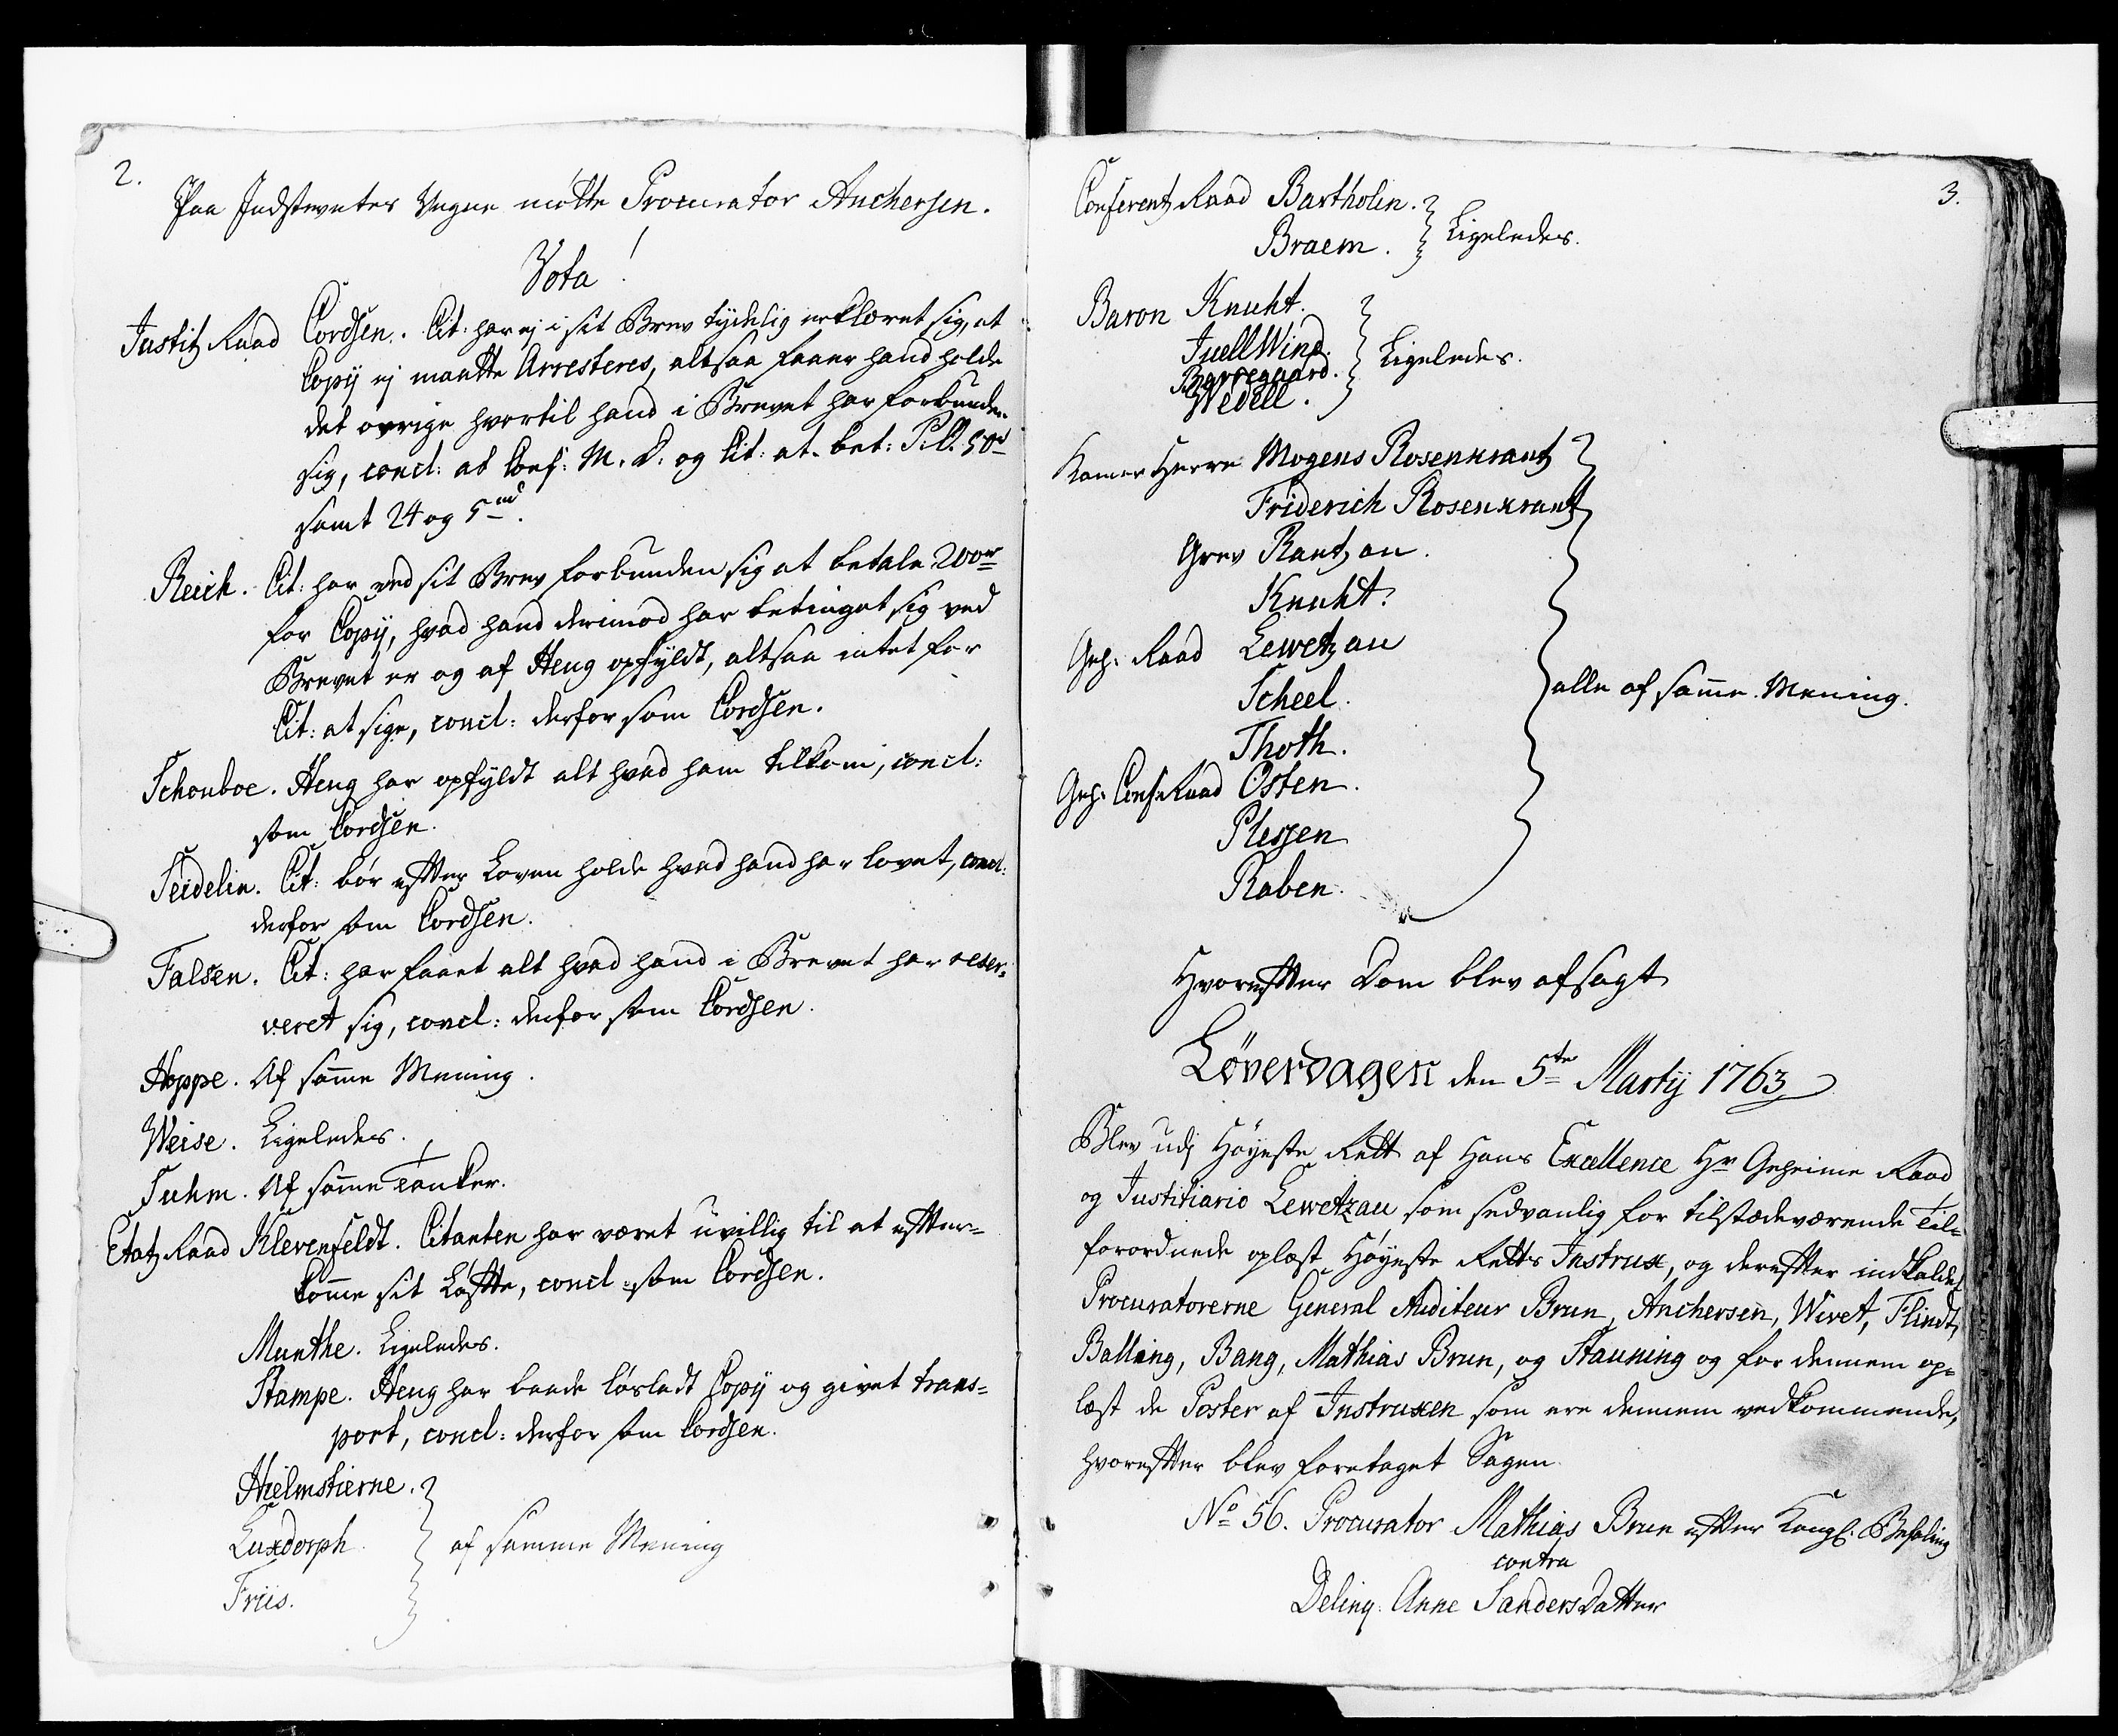 2.
Paa Indstevntes Vegne mötte Procurator Anchersen.
Vota!
Justitz Raad Cordsen. Cit: har ej i sit Brev tydelig erklæret sig, at
Copij ej maatte Arresteres, altsaa faaer hand holde
det övrige hvortil hand i Brevet har forbunden
sig, concl: ad Conf: M. D. og Cit: at bet:
samt 24 og 5
Reich. Cit: har ved sit Brev forbunden sig at betale 200
for Copij, hvad hand derimod har betinget sig ved
Brevet er og af Heug opfyldt, altsaa intet for
Cit: at sige, concl: derfor som Cordsen.
Schouboe. Heug har opfyldt alt hvad ham tilkom, concl:
som Cordsen.
Seidelin. Cit: bör efter Loven holde hvad hand har lovet, concl:
derfor som Cordsen.
Falsen. Cit: har faaet alt hvad hand i Brevet har reser-
veret sig, concl: derfor som Cordsen.
Hoppe. Af samme Mening.
Weise. Ligeledes.
Suhm. Af samme Tanker.
Etatz Raad Klevenfeldt. Citanten har været uvillig til at efter-
komme sit Löfte, concl: som Cordsen.
Munthe. Ligeledes.
Stampe. Heug har baade lösladt Copij og givet trans-
port, concl: derfor som Cordsen.
Hielmstierne.
Luxdorph
af samme Mening
Friis.
3.
Conferentz Raad Bartholin.
Braem.
Ligeledes.
Baron Knuht.
Juell Wind.
Barregaard.
Ligeledes.
Wedell.
Kamer Herre Mogens Rosenkrantz
Friderich Rosenkrantz
Grev Rantzau.
Knuht.
Geh: Raad Lewetzau
Scheel.
alle af samme Mening.
Thoth.
Geh: Conf: Raad Osten.
Plessen
Raben.
Hvorefter Dom blev afsagt
Løverdagen den 5te Martij 1763
Blev udj Höyeste Rett af Hans Excellence Hr Geheime Raad
og Justitiario Lewetzau som sedvanlig for tilstædeværende Til-
forordnede oplæst Höyeste Retts Instrux, og derefter indkaldet
Procuratorerne General Auditeur Brun, Anchersen, Wivet, Flindt,
Balling, Bang, Mathias Brun, og Stauning og for dennem op-
læst de Poster af Instruxen som ere dennem vedkommende,
hvorefter blev foretaget Sagen
No 56. Procurator Mathias Brun efter Kongl: Befaling
contra
Delinq: Anne Sanders Datter